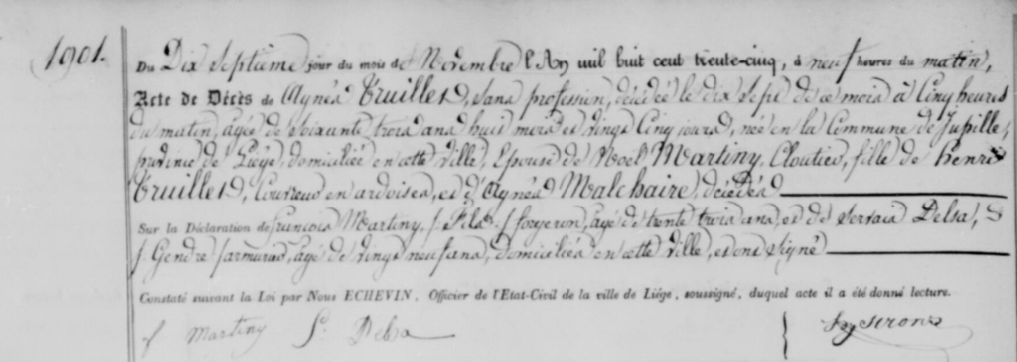 1901.
Du Dix Septieme jour du mois de Novembre l'An mil huit cent trente-cinq, à neuf heures du matin,
Acte de Décès de Agnés Truillet, sans profession, décédée le dix sept de ce mois à Cinq heures
du matin, agée de soixante trois ans huit mois et vingt Cinq jours, née en la Commune de Jupille,
province de Liége, domiciliée en cette ville, Epouse de Noel Martiny, Cloutier, fille de Henri
Truillet, Couvreur en ardoises, et d'Agnés Malchaire, décédés
Sur la Déclaration de françois Martiny, f fils f forgeron, agé de trente trois ans, et de Servais Delsa,
f Gendre f armurier, agé de vingt neuf ans, domiciliés en cette ville, et ont signé
Constaté suivant la Loi par Nous ECHEVIN, Officier de l'Etat-Civil de la ville de Liége, soussigné, duquel acte il a été donné lecture.
f Martiny S. Delsa